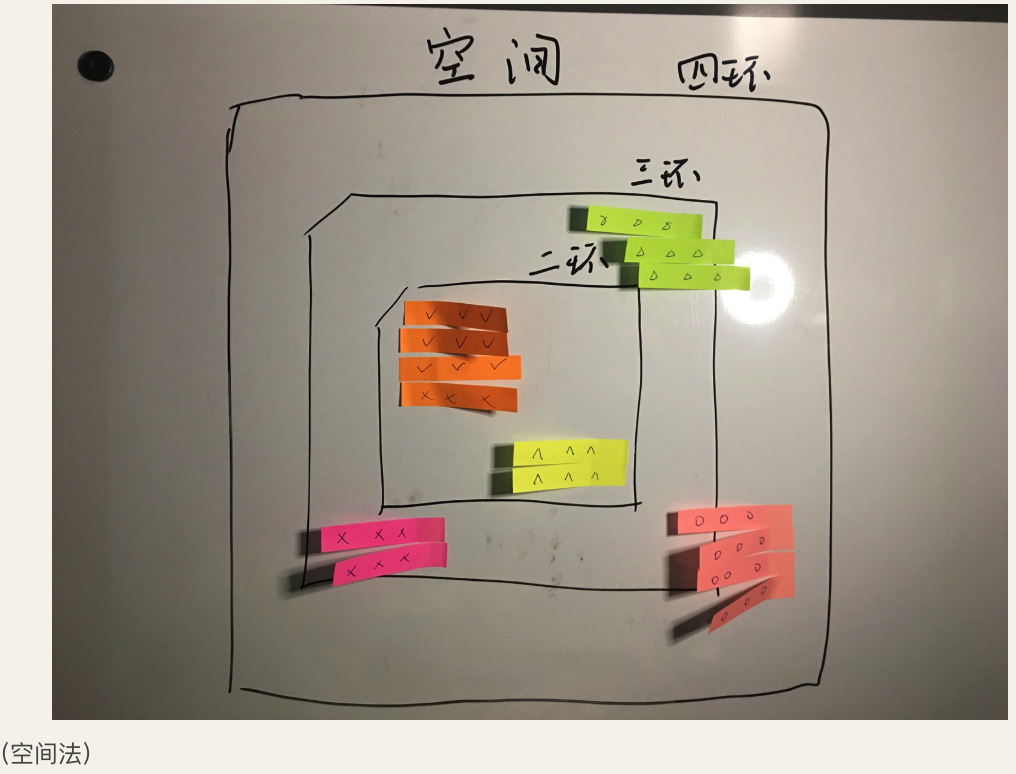 空间
四环
三环
二环
(空间法)